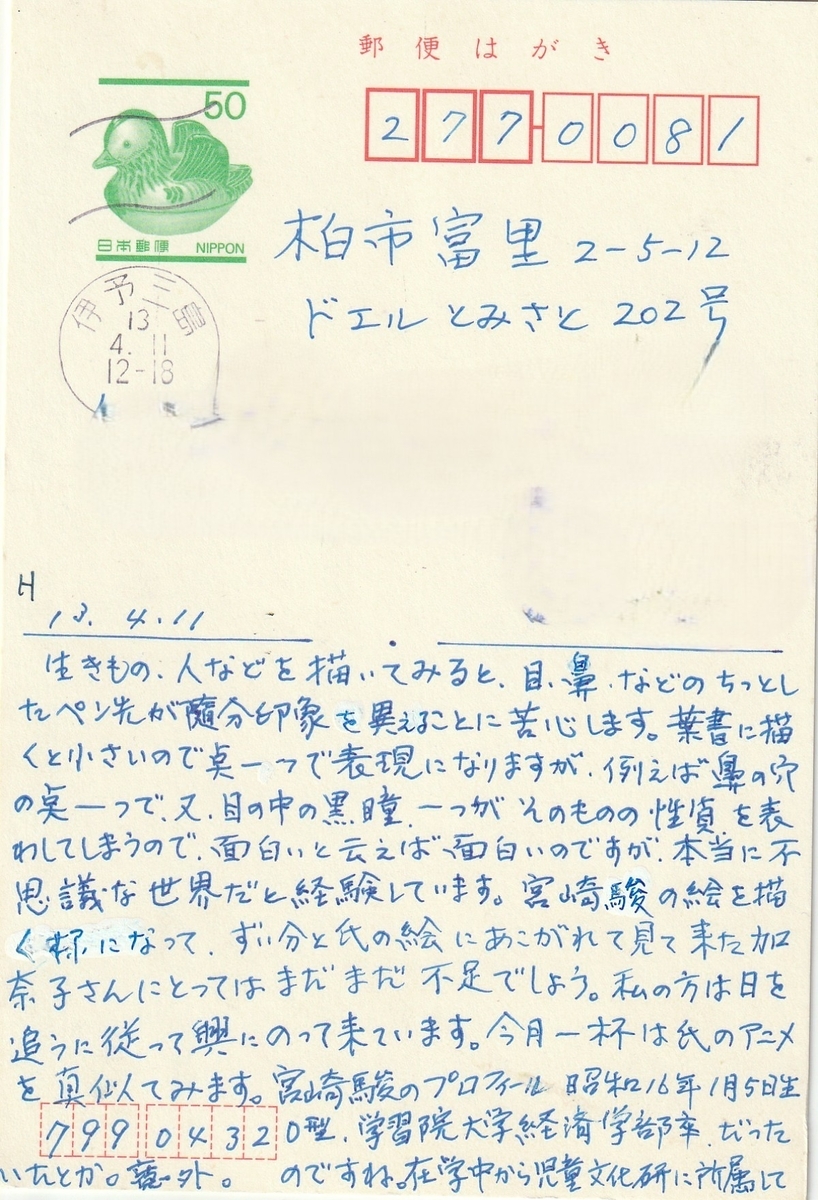 郵便はがき
50
日本郵便 NIPPON
277-0081
柏市富里 2-5-12
ドエルとみさと 202号
伊予三島
13
4.11
12-18
H
13.4.11
生きもの、人などを描いてみると、目、鼻、などのちっとし
たペン先が随分印象を異えることに苦心します。葉書に描
くと小さいので点一つで表現になりますが、例えば鼻の穴
の点一つで、又、目の中の黒瞳、一つがそのものの性質を表
わしてしまうので、面白いと云えば面白いのですが、本当に不
思議な世界だと経験しています。宮崎駿の絵を描
く様になって、ずい分と氏の絵にあこがれて見て来た加
奈子さんにとってはまだまだ不足でしょう。私の方は日を
追うに従って興にのって来ています。今月一杯は氏のアニメ
を真似てみます。宮崎駿のプロフィール 昭和16年1月5日生
799 0432 O型、学習院大学経済学部卒、だった
のですね。在学中から児童文化研に所属して
いたとか。意外。